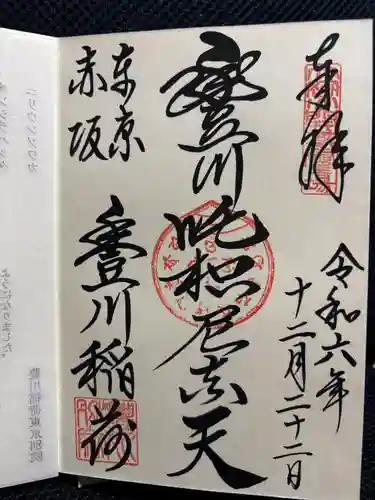 奉拝
令和六年
十二月二十二日
豊川吒枳尼真天
東京
赤坂
豊川稲荷
豊川稲荷東京別院
ようになりました。